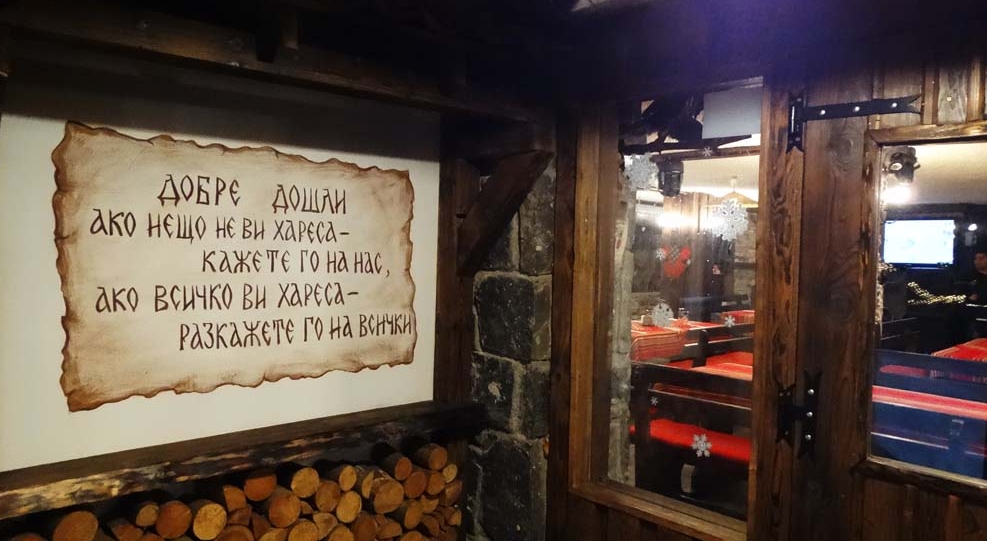 ДОБРЕ ДОШЛИ
АКО НЕЩО НЕ ВИ ХАРЕСА–
КАЖЕТЕ ГО НА НАС,
АКО ВСИЧКО ВИ ХАРЕСА–
РАЗКАЖЕТЕ ГО НА ВСИЧКИ